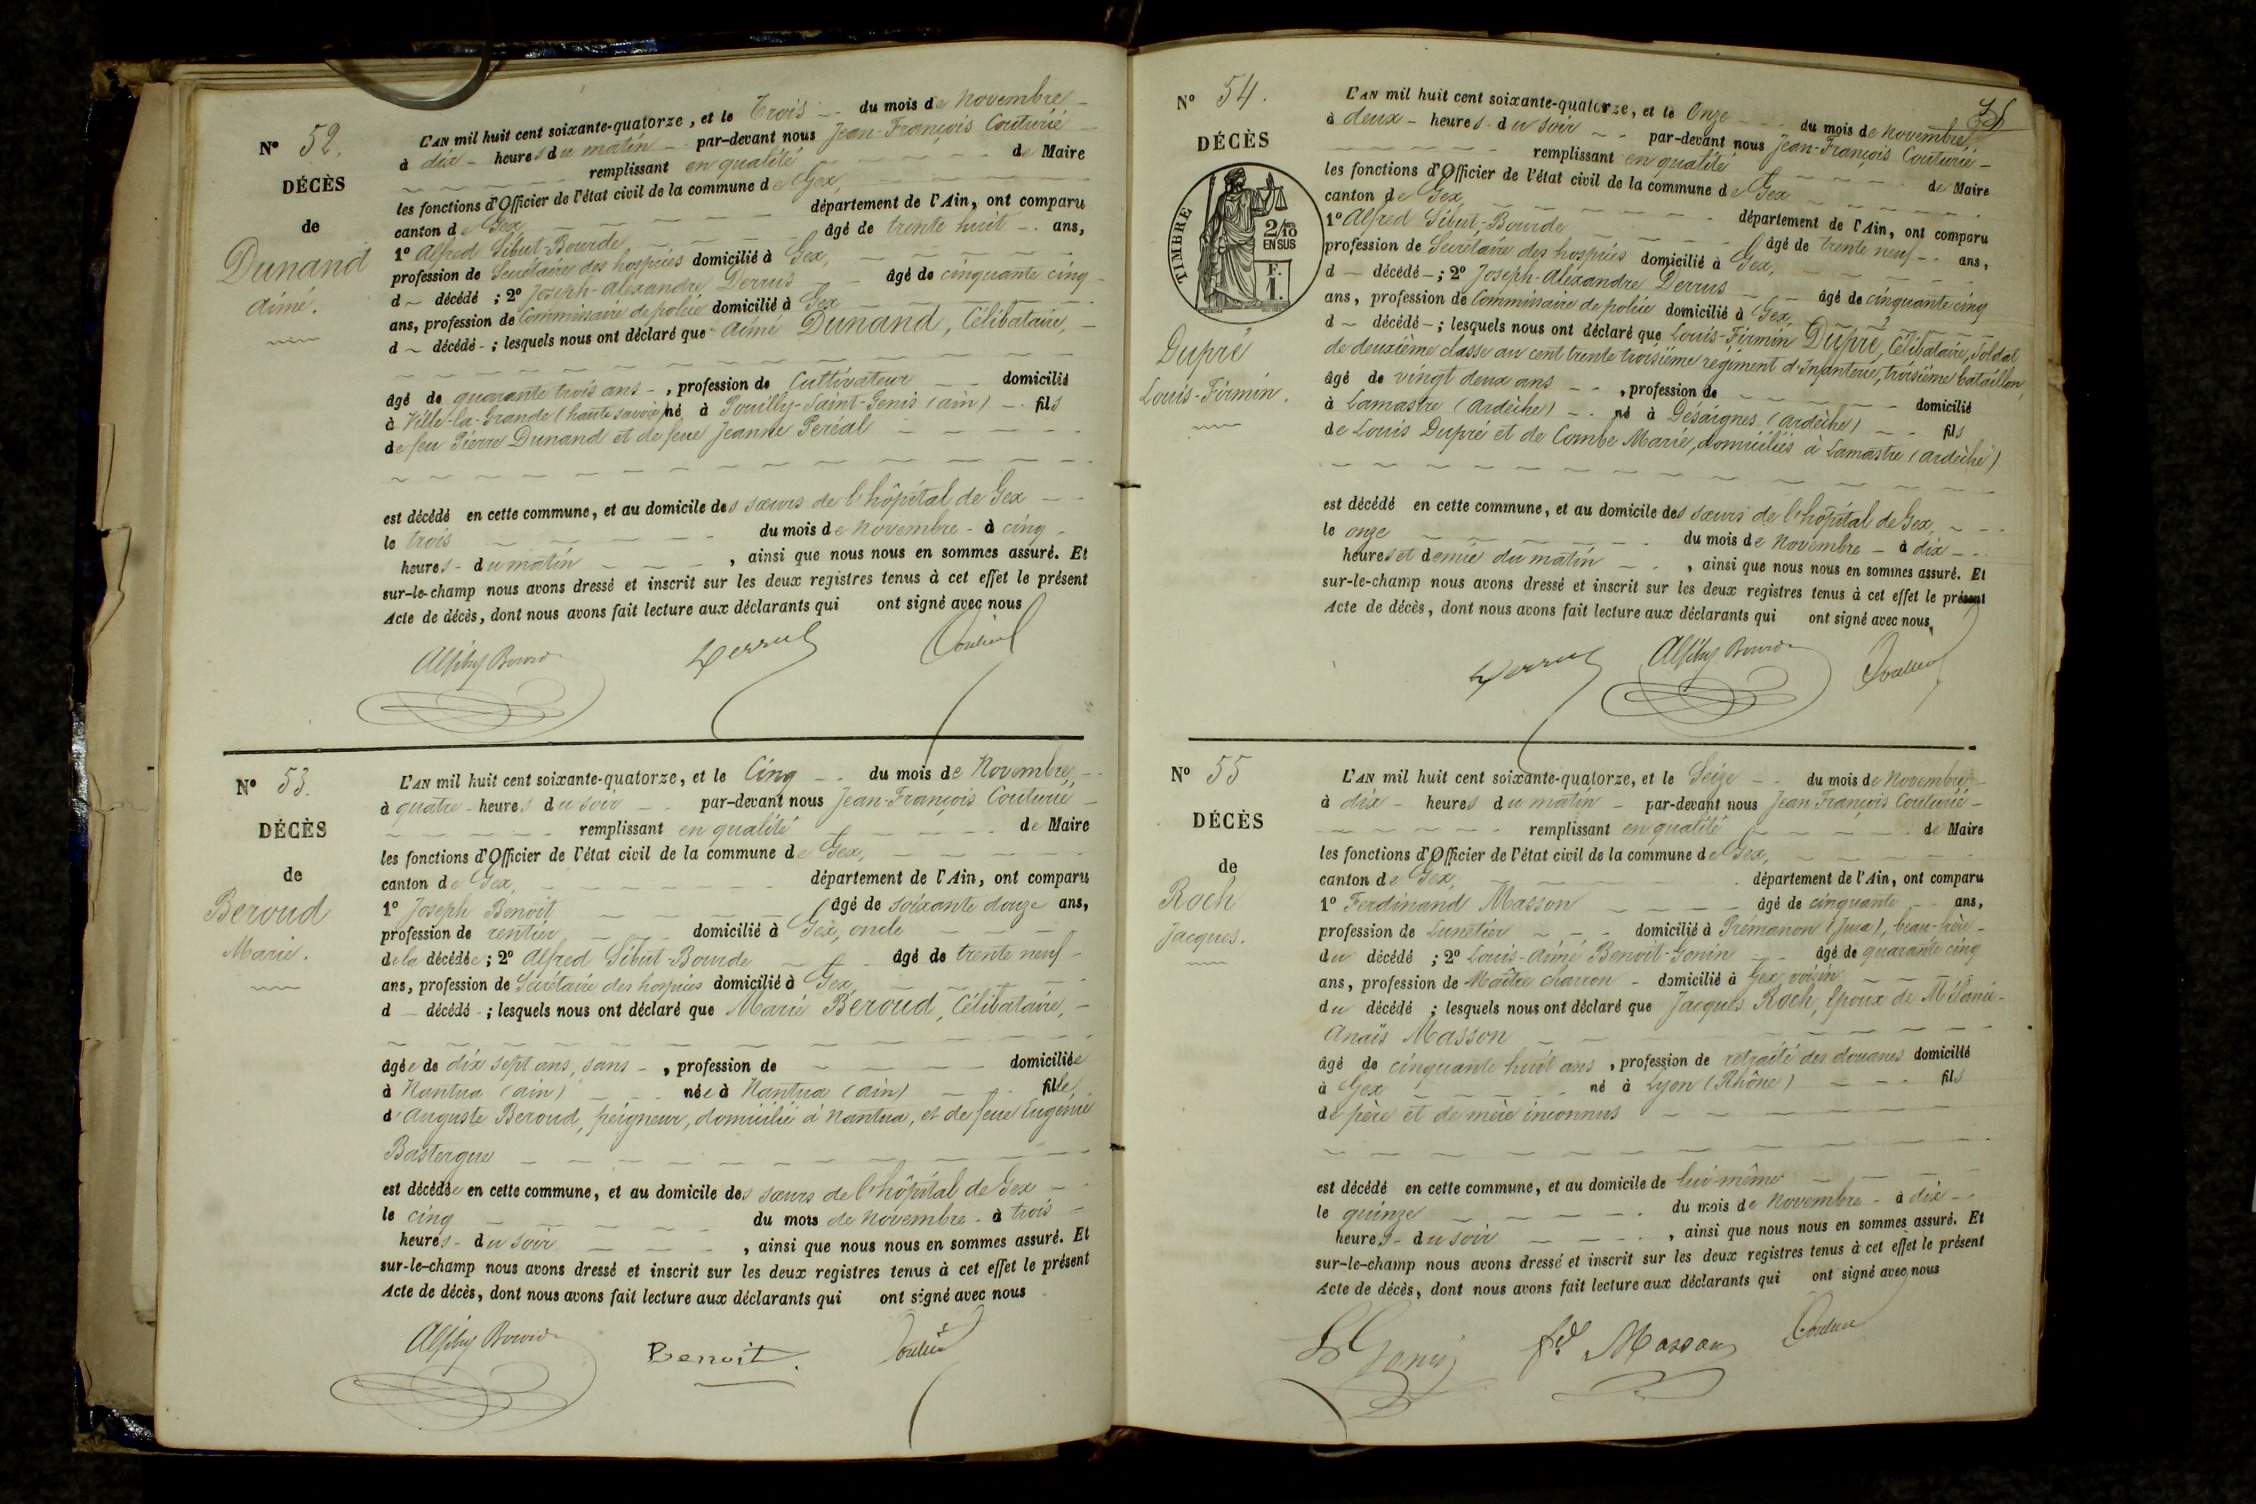 N° 52.
DÉCÈS
de
Dunand
Aimé.
L'AN mil huit cent soixante-quatorze, et le Trois du mois de Novembre
à dix heures du matin par-devant nous Jean-François Couturié
remplissant en qualité de Maire
les fonctions d'Officier de l'état civil de la commune de Gex,
canton de Gex, département de l'Ain, ont comparu
1° Alfred Sibut-Bourde, âgé de trente huit ans,
profession de Secrétaire des hospices domicilié à Gex,
d décédé ; 2° Joseph-Alexandre Derrus âgé de cinquante cinq
ans, profession de Commissaire de police domicilié à Gex
d décédé ; lesquels nous ont déclaré que Aimé Dunand, Célibataire,
âgé de quarante trois ans, profession de Cultivateur domicilié
à Ville-la-Grande (haute savoie) né à Pouilly-Saint-Genis (ain) fils
de feu Pierre Dunand et de feue Jeanne Perial
est décédé en cette commune, et au domicile des sœurs de l'hôpital de Gex
le trois du mois de Novembre à cinq
heures du matin, ainsi que nous nous en sommes assuré. Et
sur-le-champ nous avons dressé et inscrit sur les deux registres tenus à cet effet le présent
Acte de décès, dont nous avons fait lecture aux déclarants qui ont signé avec nous
Derrus
N° 53.
DÉCÈS
de
Beroud
Marie.
L'AN mil huit cent soixante-quatorze, et le Cinq du mois de Novembre,
à quatre heures du soir par-devant nous Jean-François Couturié
remplissant en qualité de Maire
les fonctions d'Officier de l'état civil de la commune de Gex,
canton de Gex, département de l'Ain, ont comparu
1° Joseph Benoit âgé de soixante douze ans,
profession de rentier domicilié à Gex, oncle
de la décédée ; 2° Alfred Sibut-Bourde âgé de trente neuf
ans, profession de Secrétaire des hospices domicilié à Gex
d décédé ; lesquels nous ont déclaré que Marie Beroud, Célibataire,
âgée de dix sept ans, sans, profession de domiciliée
à Nantua (ain) née à Nantua (ain) fille
d'Auguste Beroud, peigneur, domicilié à Nantua, et de feue Eugénie
Bastergue
est décédée en cette commune, et au domicile des sœurs de l'hôpital de Gex
le cinq du mois de Novembre à trois
heures du soir, ainsi que nous nous en sommes assuré. Et
sur-le-champ nous avons dressé et inscrit sur les deux registres tenus à cet effet le présent
Acte de décès, dont nous avons fait lecture aux déclarants qui ont signé avec nous
Benoit.
N° 54.
DÉCÈS
TIMBRE
2/10
EN SUS
F.
1.
Dupré
Louis-Firmin.
L'AN mil huit cent soixante-quatorze, et le Onze du mois de Novembre,
à deux heures du soir par-devant nous Jean-François Couturié
remplissant en qualité de Maire
les fonctions d'Officier de l'état civil de la commune de Gex
canton de Gex, département de l'Ain, ont comparu
1° Alfred Sibut-Bourde, âgé de trente neuf ans,
profession de Secrétaire des hospices domicilié à Gex,
d décédé ; 2° Joseph-Alexandre Derrus âgé de cinquante cinq
ans, profession de Commissaire de police domicilié à Gex
d décédé ; lesquels nous ont déclaré que Louis-Firmin Dupré, Célibataire, Soldat
de deuxième classe au cent trente troisième régiment d'Infanterie, troisième bataillon,
âgé de vingt deux ans, profession de domicilié
à Lamastre (Ardèche) né à Désaignes (Ardèche) fils
de Louis Dupré et de Combe Marie, domiciliés à Lamastre (Ardèche)
est décédé en cette commune, et au domicile des sœurs de l'hôpital de Gex
le onze du mois de Novembre à dix
heures et demie du matin, ainsi que nous nous en sommes assuré. Et
sur-le-champ nous avons dressé et inscrit sur les deux registres tenus à cet effet le présent
Acte de décès, dont nous avons fait lecture aux déclarants qui ont signé avec nous
Derrus
N° 55
DÉCÈS
de
Roch
Jacques.
L'AN mil huit cent soixante-quatorze, et le Seize du mois de Novembre
à dix heures du matin par-devant nous Jean François Couturié
remplissant en qualité de Maire
les fonctions d'Officier de l'état civil de la commune de Gex,
canton de Gex, département de l'Ain, ont comparu
1° Ferdinand Masson âgé de cinquante ans,
profession de Lunetier domicilié à Prémanon (Jura), beau-frère
du décédé ; 2° Louis-Aimé Benoit-Gonin âgé de quarante cinq
ans, profession de Maître charron domicilié à Gex, voisin
du décédé ; lesquels nous ont déclaré que Jacques Roch, Epoux de Mélanie-
Anaïs Masson
âgé de cinquante huit ans, profession de retraité des douanes domicilié
à Gex né à Lyon (Rhône) fils
de père et de mère inconnus
est décédé en cette commune, et au domicile de lui-même
le quinze du mois de Novembre à dix
heures du soir, ainsi que nous nous en sommes assuré. Et
sur-le-champ nous avons dressé et inscrit sur les deux registres tenus à cet effet le présent
Acte de décès, dont nous avons fait lecture aux déclarants qui ont signé avec nous
Fd Masson